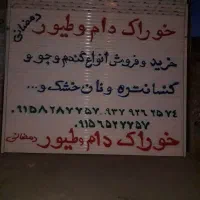 خوراک دام و طیور رمضانی
خرید و فروش انواع گندم و جو و
کنسانتره و نان خشک و...
۰۹۱۵۸۲۸۷۷۵۷ ۰۹۳۷۹۲۶۲۵۷۴
۰۹۱۵۶۵۲۷۷۵۷
خوراک دام و طیور رمضانی